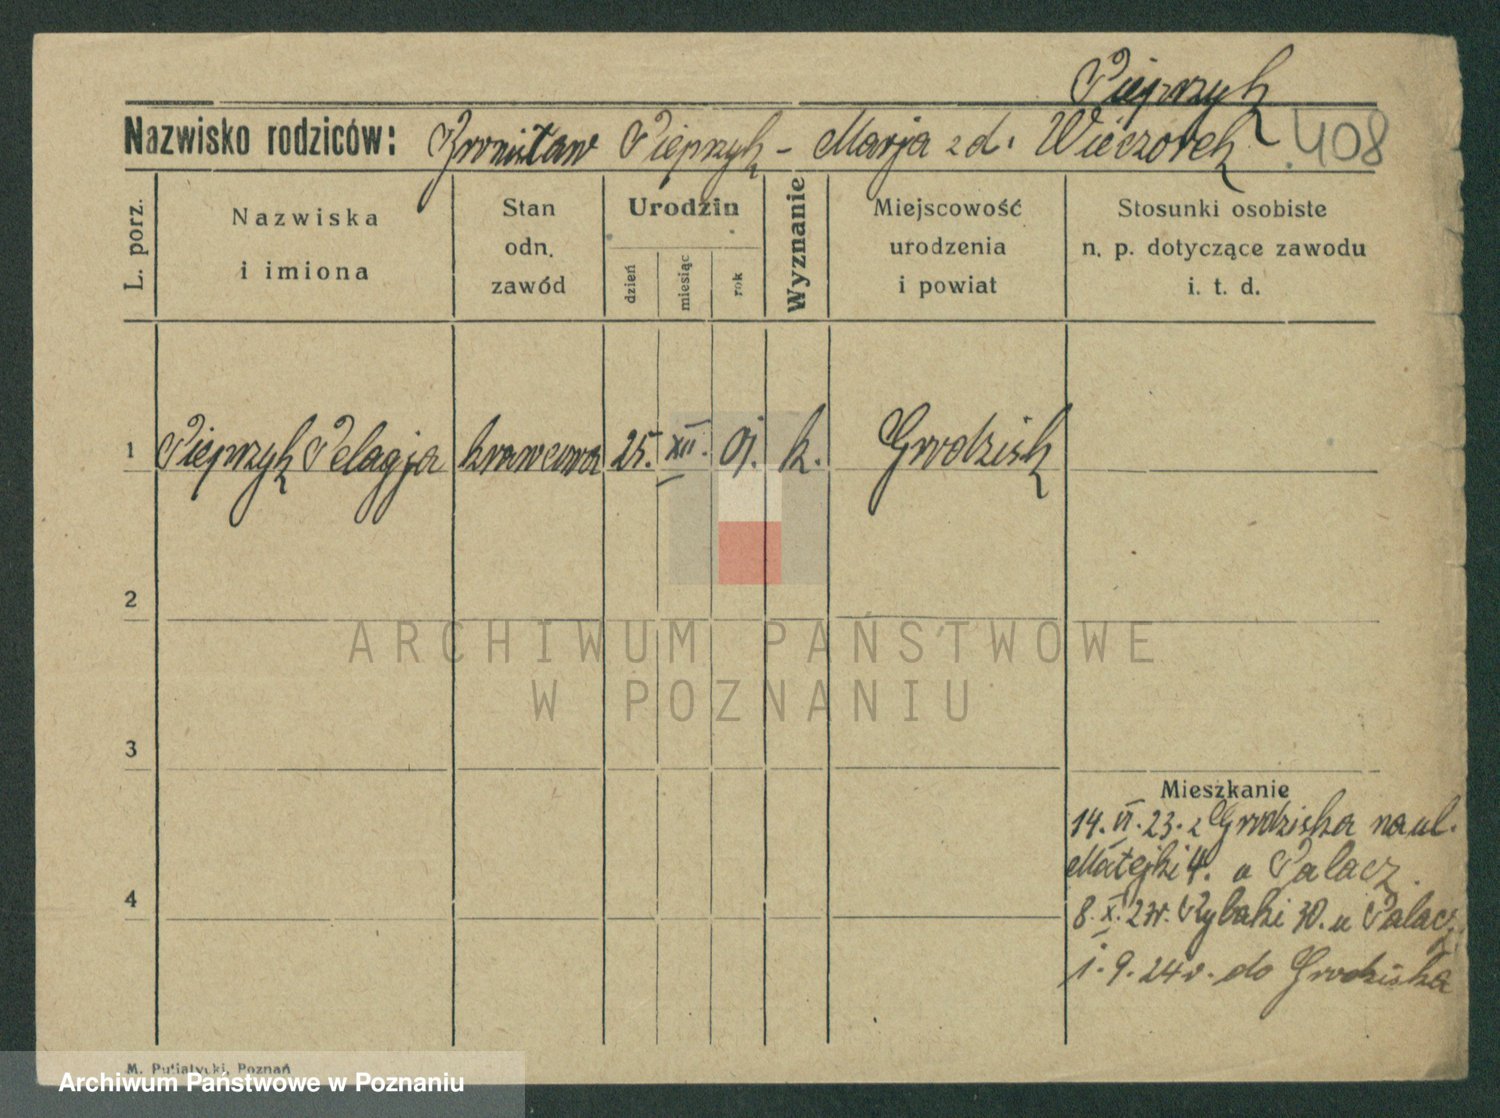 Pieprzyk
Nazwisko rodziców: Bronisław Pieprzyk - Marja z d. Wieczorek
408
L. porz.
Nazwiska
i imiona
Stan
odn.
zawód
Urodzin
dzień
miesiąc
rok
Wyznanie
Miejscowość
urodzenia
i powiat
Stosunki osobiste
n. p. dotyczące zawodu
i. t. d.
1 Pieprzyk Pelagja krawcowa 25. XII. 01. k. Grodzisk
2
ARCHIWUM PAŃSTWOWE
W POZNANIU
3
Mieszkanie
14. VI. 23. z Grodziska na ul.
Matejki 4. u Palacz.
4
8. X. 23r. Rybaki 30. u Palacz
1. 9. 24r. do Grodziska
M. Putiatycki, Poznań
Archiwum Państwowe w Poznaniu